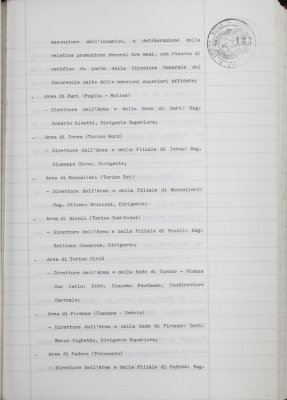 esecuzione dell'incarico, e deliberazione della
relativa promozione decorsi tre mesi, con riserva di
verifica da parte della Direzione Generale del
favorevole esito delle mansioni superiori affidate;
. Area di Bari (Puglia - Molise)
- Direttore dell'Area e della Sede di Bari: Rag.
Roberto Dirigente Superiore;
. Area di Ivrea (Torino Nord)
- Direttore dell'Area e della Filiale di Ivrea: Rag.
Giuseppe Giovo, Dirigente;
. Area di Moncalieri (Torino Est)
- Direttore dell'Area e della Filiale di Moncalieri:
Rag. Silvano Dirigente;
. Area di Rivoli (Torino Sud-Ovest)
- Direttore dell'Area e della Filiale di Rivoli: Rag.
Emiliano Dirigente;
. Area di Torino Città
- Direttore dell'Area e della Sede di Torino - Piazza
San Carlo: Dott. Giacomo Condirettore
Centrale;
. Area di Firenze (Toscana - Umbria)
- Direttore dell'Area e della Sede di Firenze: Dott.
Marco Vighetto, Dirigente Superiore;
. Area di Padova (Triveneto)
- Direttore dell'Area e della Filiale di Padova: Rag.